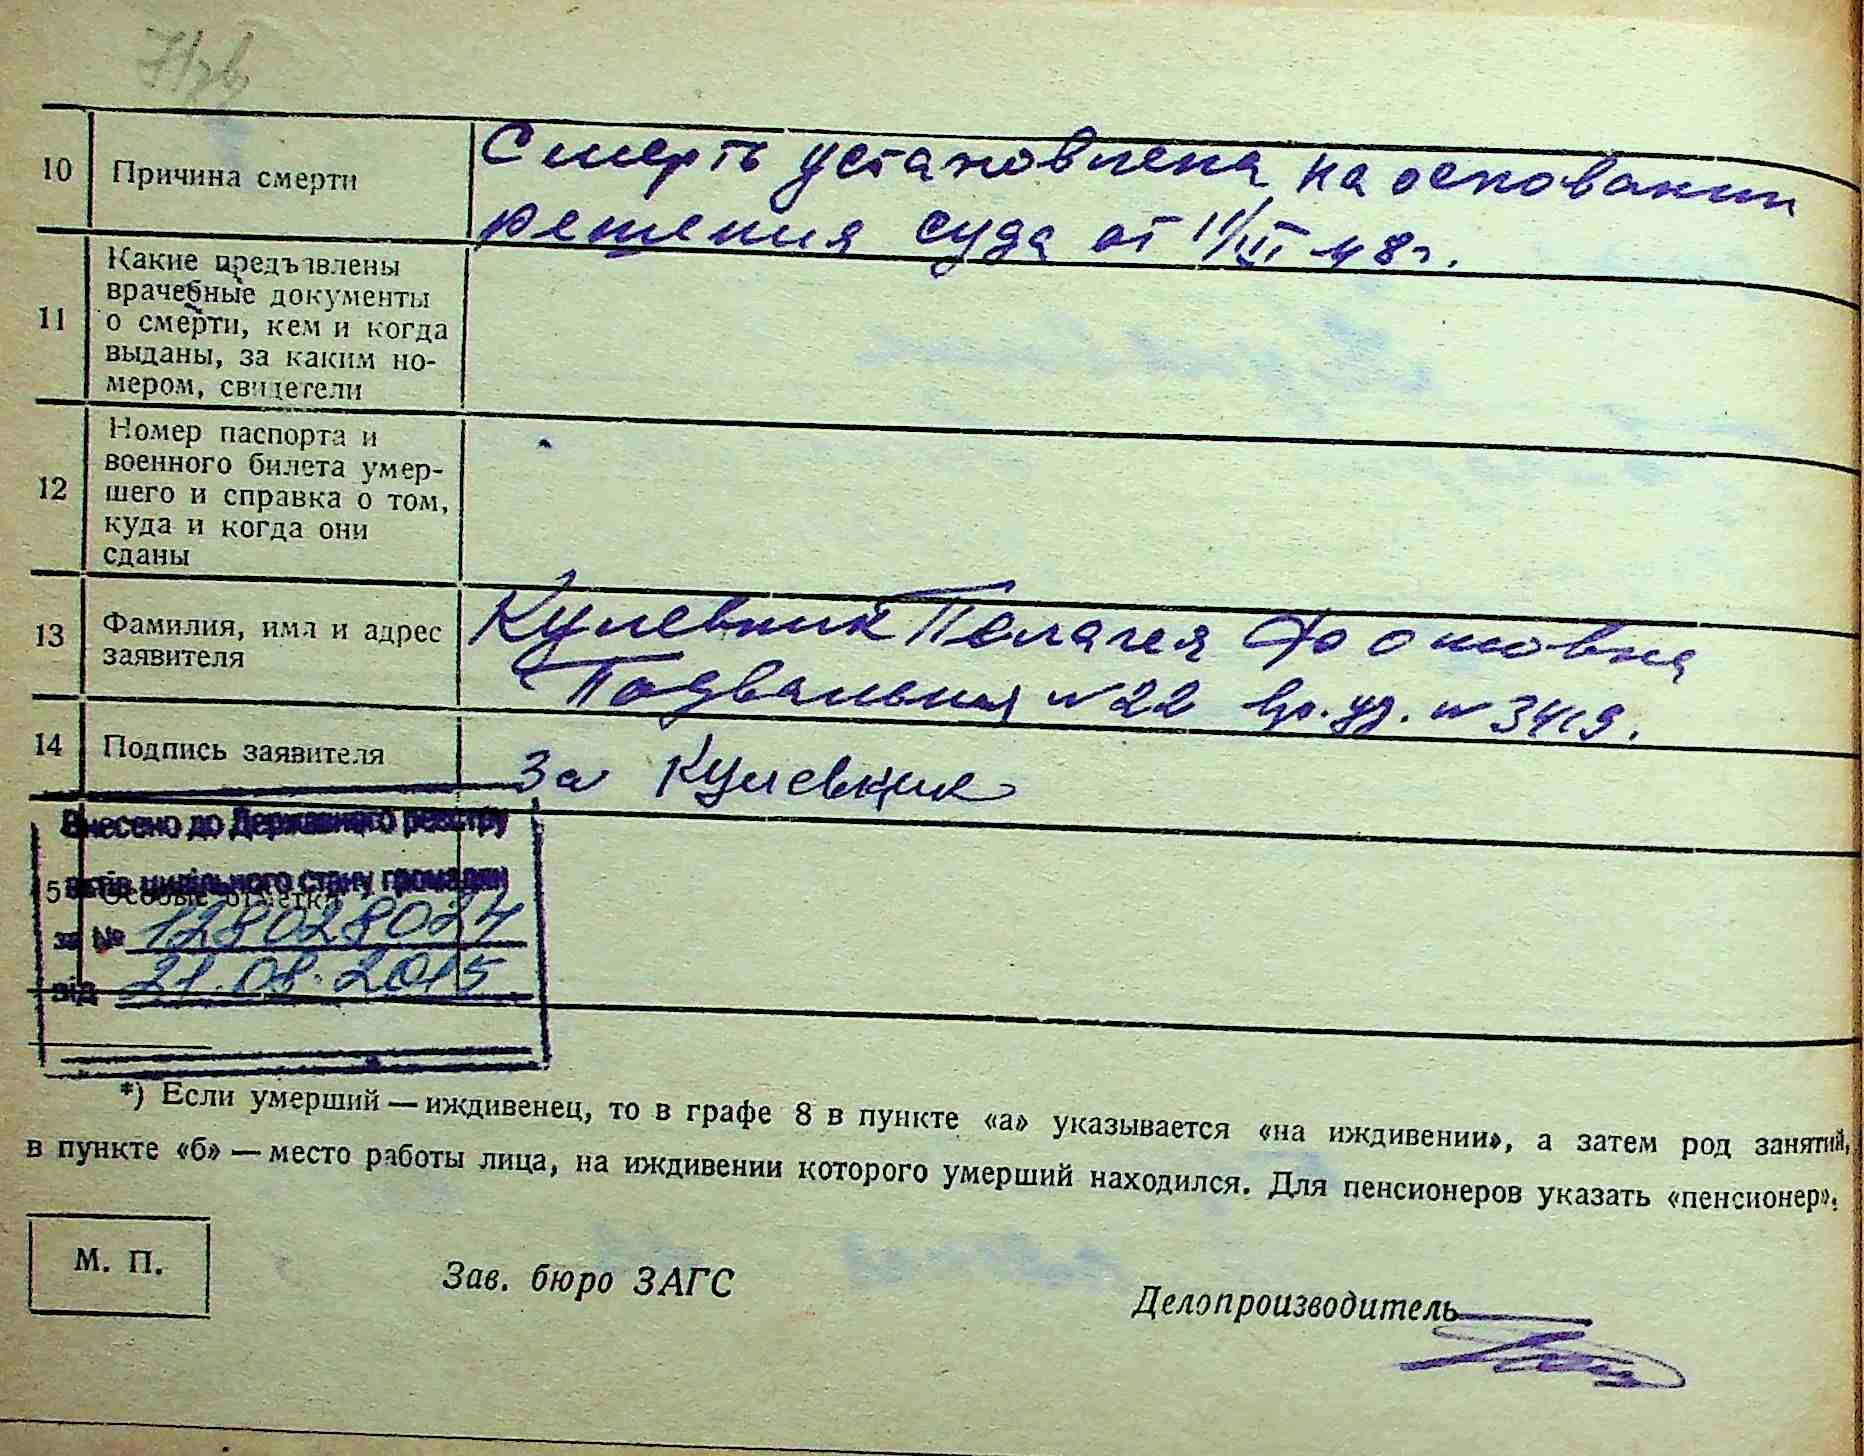 10 Причина смерти
Смерть установлена на основании
решения суда от 11/III 48 г.
11 Какие предъявлены
врачебные документы
о смерти, кем и когда
выданы, за каким но-
мером, свидетели
12 Номер паспорта и
военного билета умер-
шего и справка о том,
куда и когда они
сданы
13 Фамилия, имя и адрес
заявителя
Пелагея Фомовна
Подвальная № 22 вр. уд. № 3419.
14 Подпись заявителя
За
Внесено до Державного реєстру
актів цивільного стану громадян
5 Особые отметки
за № 128028024
від 21.08.2015
*) Если умерший — иждивенец, то в графе 8 в пункте «а» указывается «на иждивении», а затем род занятий,
в пункте «б» — место работы лица, на иждивении которого умерший находился. Для пенсионеров указать «пенсионер».
М. П.
Зав. бюро ЗАГС
Делопроизводитель